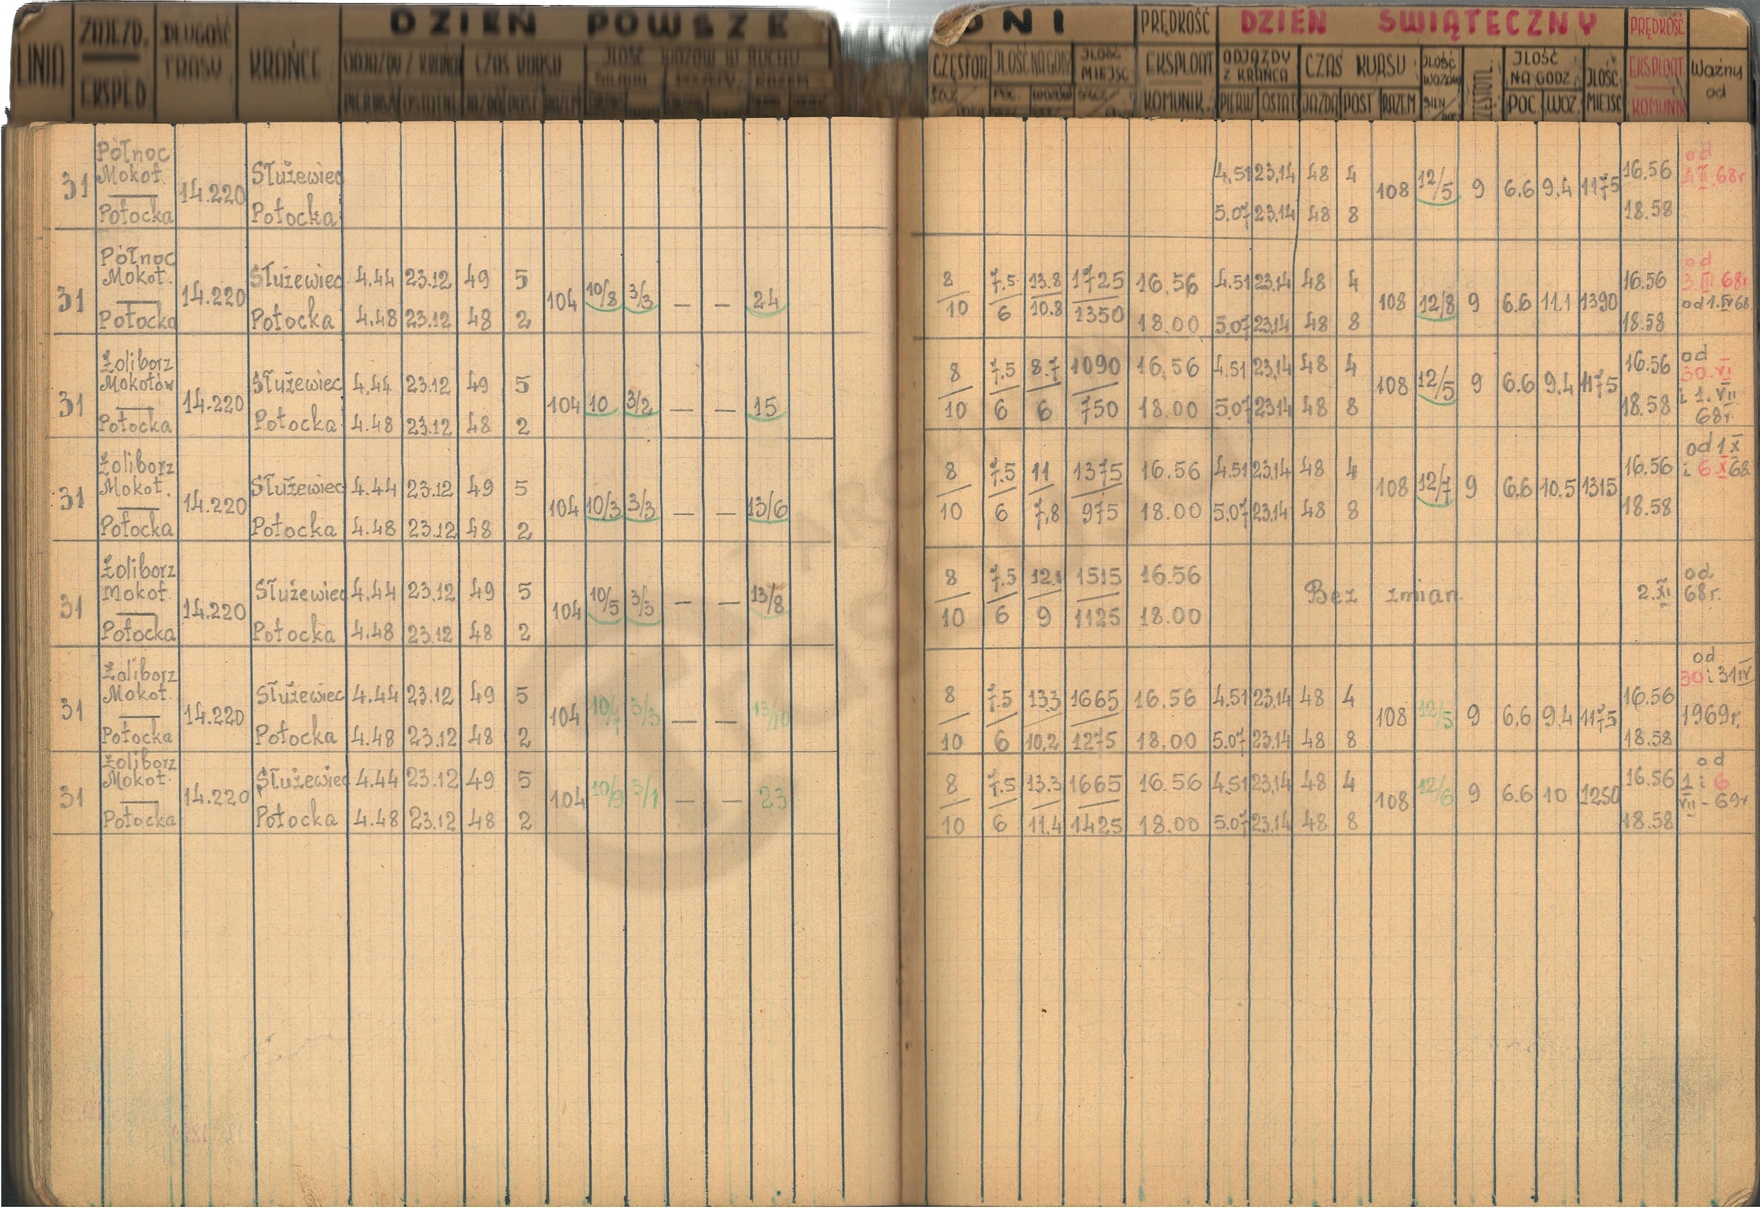 LINIA ZAJEZD. EKSPED DŁUGOŚĆ TRASY KRAŃCE DZIEŃ POWSZEDNI PRĘDKOŚĆ EKSPLOAT KOMUNIK. DZIEŃ ŚWIĄTECZNY PRĘDKOŚĆ EKSPLOAT KOMUNIK Ważny od
ODJAZDY Z KRAŃCA CZAS KURSU ILOŚĆ WOZÓW W RUCHU ILOŚĆ NA GODZ ILOŚĆ MIEJSC ODJAZDY Z KRAŃCA CZAS KURSU ILOŚĆ WOZÓW ILOŚĆ NA GODZ. ILOŚĆ MIEJSC
JAZDA POST RAZEM POC. WOZÓW PIERW OSTAT JAZDA POST RAZEM POC. WOZ.
Północ od
31 Mokot. 14.220 Służewiec 4.51 23.14 48 4 108 12/5 9 6.6 9.4 1175 16.56
Potocka Potocka 5.07 23.14 48 8 18.58
Północ od
31 Mokot. 14.220 Służewiec 4.44 23.12 49 5 104 10/8 3/3 — — 24 8 7.5 13.8 1725 16.56 4.51 23.14 48 4 108 12/8 9 6.6 11.1 1390 16.56
Potocka Potocka 4.48 23.12 48 2 10 6 10.8 1350 18.00 5.07 23.14 48 8 18.58
Żoliborz od
31 Mokotów 14.220 Służewiec 4.44 23.12 49 5 104 10 3/2 — — 15 8 7.5 8.7 1090 16.56 4.51 23.14 48 4 108 12/5 9 6.6 9.4 1175 16.56 30.VI
Potocka Potocka 4.48 23.12 48 2 10 6 6 750 18.00 5.07 23.14 48 8 18.58 i 1.VII 68r.
Żoliborz od 1 X
31 Mokot. 14.220 Służewiec 4.44 23.12 49 5 104 10/3 3/3 — — 13/6 8 7.5 11 1375 16.56 4.51 23.14 48 4 108 12/7 9 6.6 10.5 1315 16.56 i 6 X 68
Potocka Potocka 4.48 23.12 48 2 10 6 7,8 975 18.00 5.07 23.14 48 8 18.58
Żoliborz od
31 Mokot. 14.220 Służewiec 4.44 23.12 49 5 104 10/5 3/3 — — 13/8 8 7.5 12.1 1515 16.56 Bez zmian 2.XI 68r.
Potocka Potocka 4.48 23.12 48 2 10 6 9 1125 18.00
Żoliborz od
31 Mokot. 14.220 Służewiec 4.44 23.12 49 5 104 10/7 3/3 — — 13/10 8 7.5 13.3 1665 16.56 4.51 23.14 48 4 108 12/5 9 6.6 9.4 1175 16.56 30 i 31 IV
Potocka Potocka 4.48 23.12 48 2 10 6 10,2 1275 18.00 5.07 23.14 48 8 18.58 1969r.
Żoliborz od
31 Mokot. 14.220 Służewiec 4.44 23.12 49 5 104 10/9 3/1 — — 23 8 7.5 13.3 1665 16.56 4.51 23.14 48 4 108 12/6 9 6.6 10 1250 16.56 1 i 6
Potocka Potocka 4.48 23.12 48 2 10 6 11.4 1425 18.00 5.07 23.14 48 8 18.58 VII - 69r